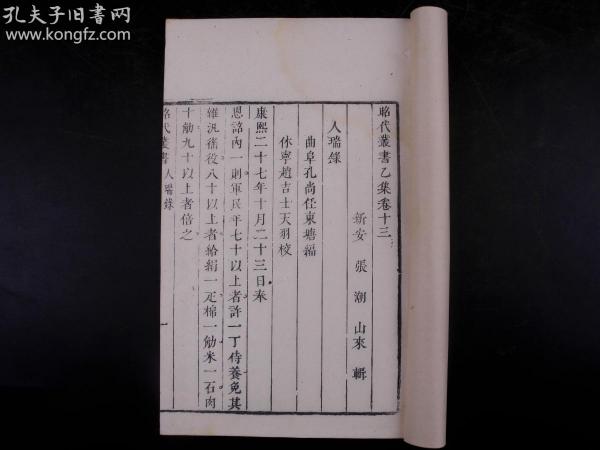 孔夫子旧书网
www.kongfz.com
昭代叢書乙集卷十三
新安 張潮 山來 輯
人瑞錄
曲阜孔尚任東塘編
休寧趙吉士天羽校
康熙二十七年十月二十三日奉
恩詔內一則軍民年七十以上者許一丁侍養免其
雜汎徭役八十以上者給絹一疋棉一觔米一石肉
十觔九十以上者倍之
昭代叢書 人瑞錄 一